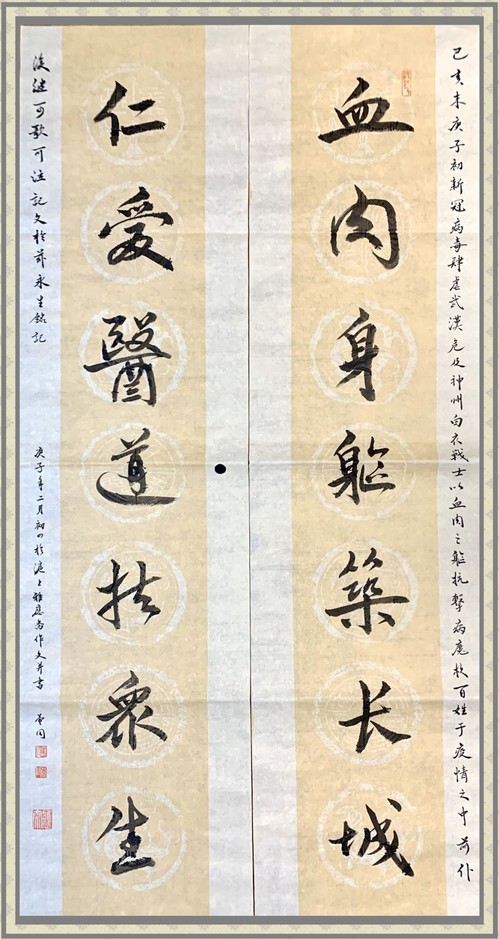 己亥末庚子初新冠病毒肆虐武漢危及神州白衣戰士以血肉之軀抗擊病魔救百姓于疫情之中前仆
血肉身軀築长城
仁愛醫道扶衆生
後继可歌可泣記文於茲永生銘記
庚子年二月初四於滬上作文并書